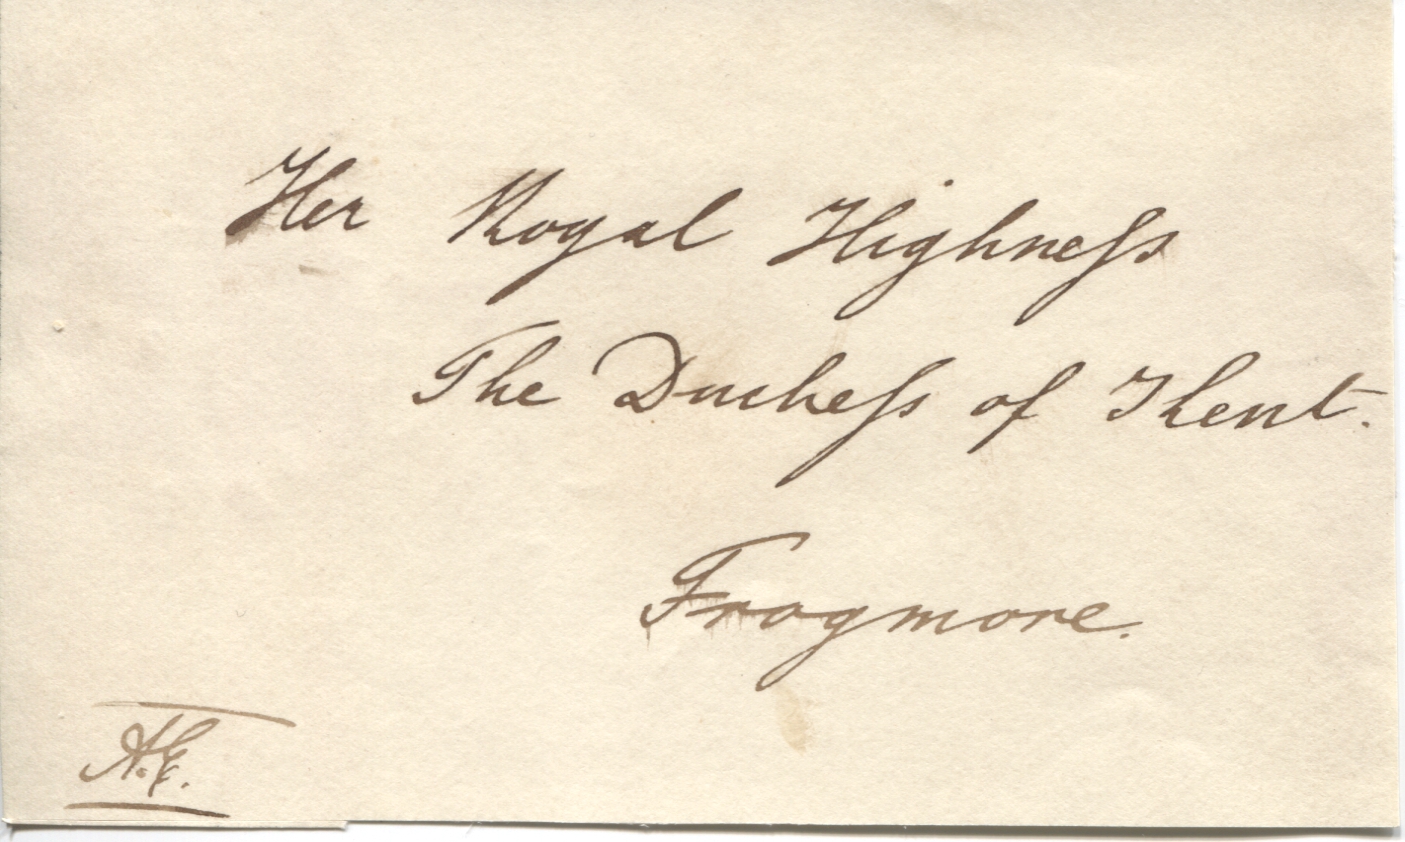 Her Royal Highneſs
The Ducheſs of Kent.
Frogmore.
A.E.